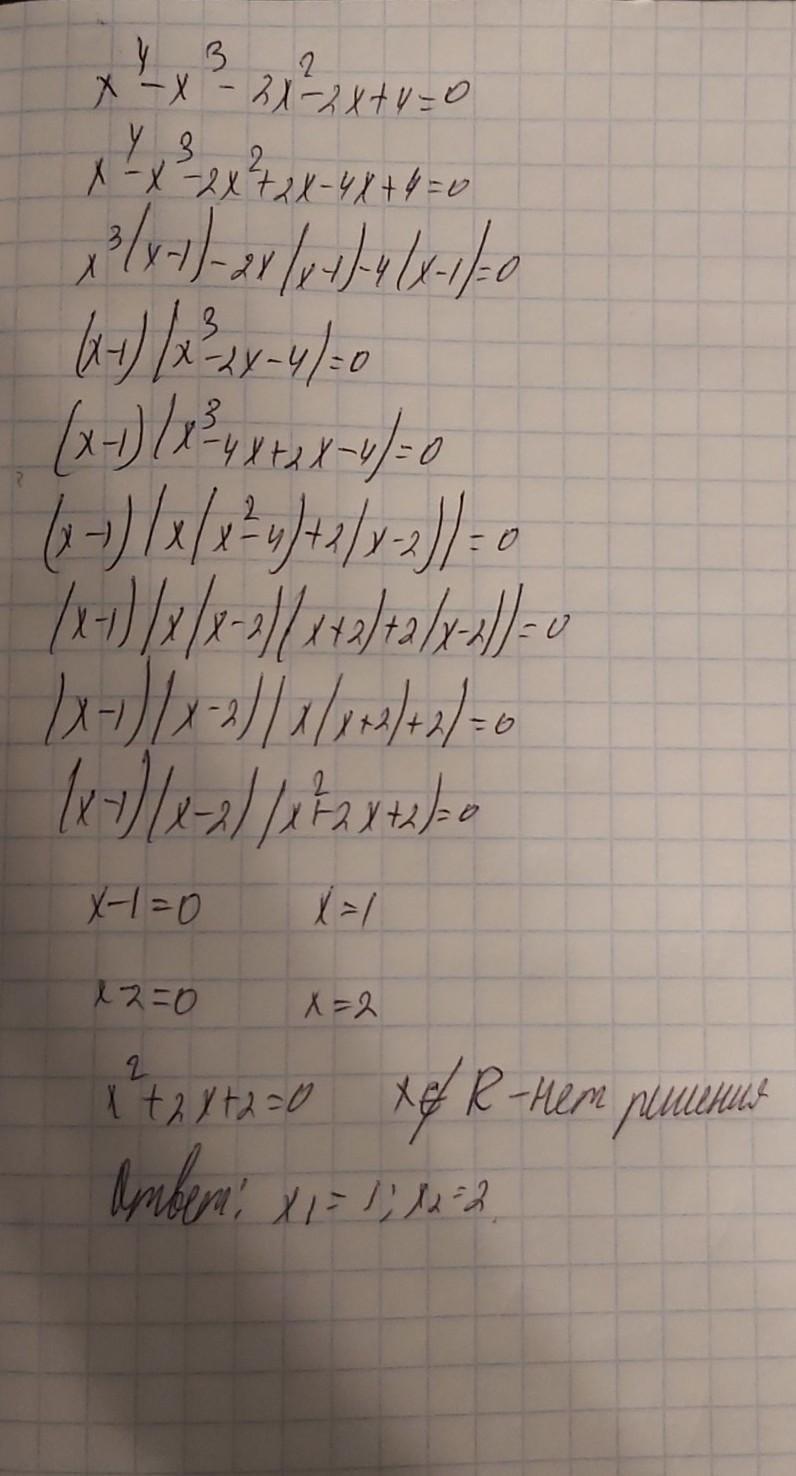 x⁴-x³-2x²-2x+4=0
x⁴-x³-2x²+2x-4x+4=0
x³(x-1)-2x(x-1)-4(x-1)=0
(x-1)(x³-2x-4)=0
(x-1)(x³-4x+2x-4)=0
(x-1)(x(x²-4)+2(x-2))=0
(x-1)(x(x-2)(x+2)+2(x-2))=0
(x-1)(x-2)(x(x+2)+2)=0
(x-1)(x-2)(x²+2x+2)=0
x-1=0 x=1
x-2=0 x=2
x²+2x+2=0 x∉R-нет решения
Ответ: x₁=1; x₂=2.